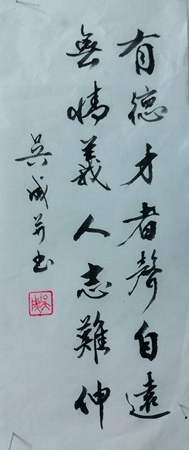 有德才者聲自遠
無情義人志難伸
吳成井书